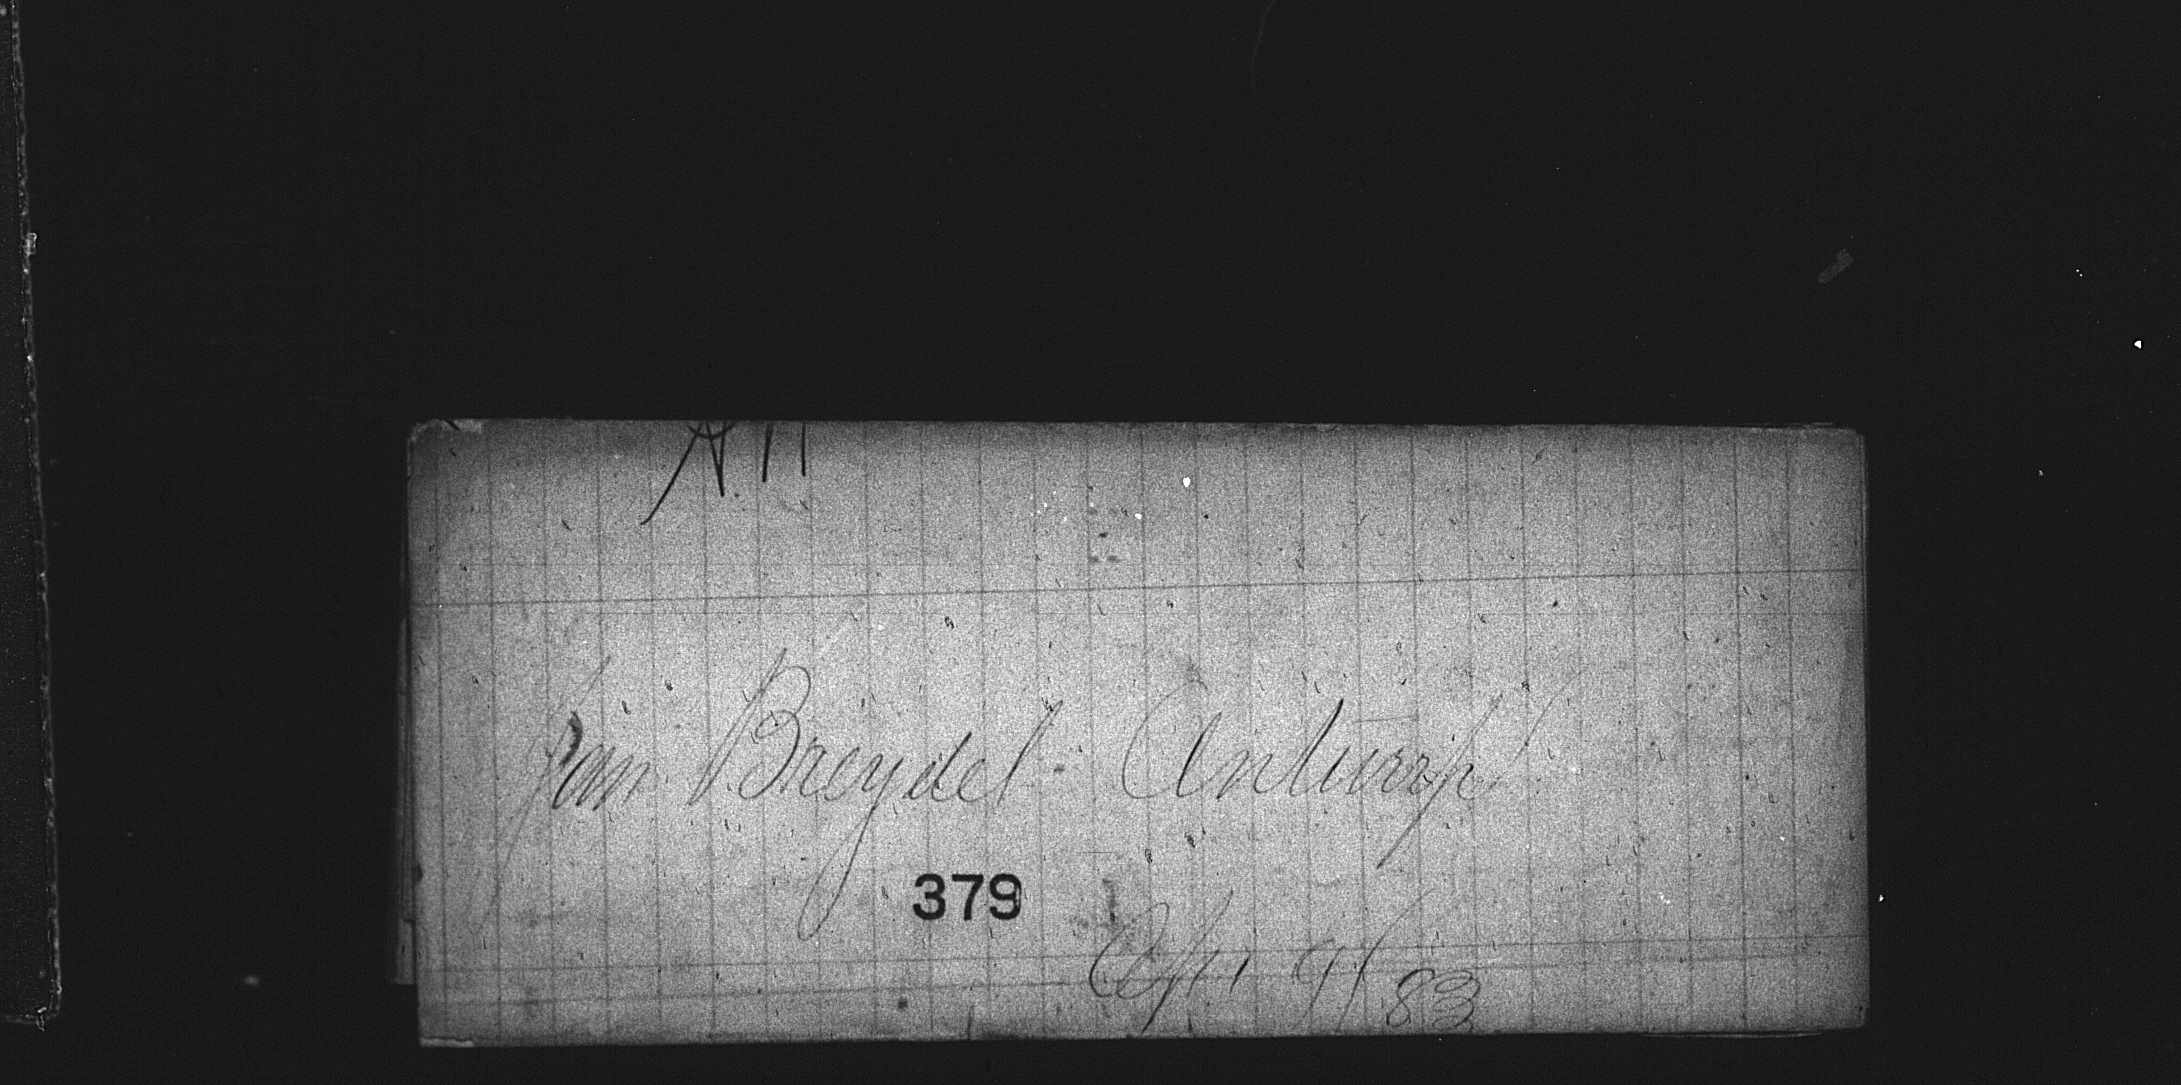 A. 11
Jan Breydel - Antwerp
379
Apr 9/83